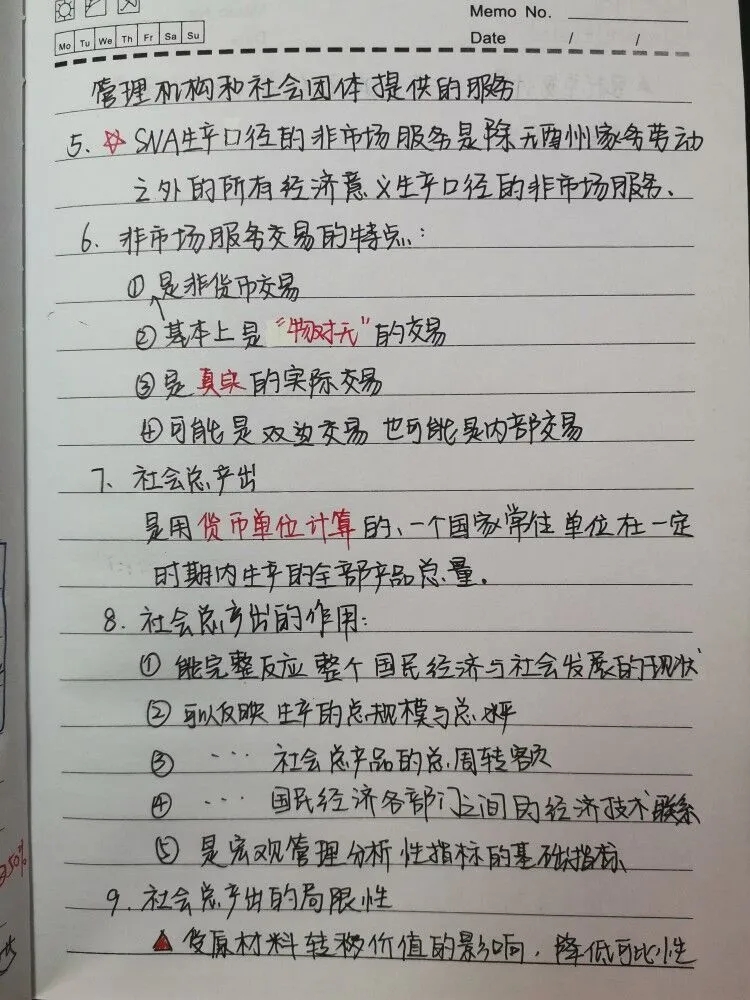 Memo No.
Mo Tu We Th Fr Sa Su
Date / /
管理机构和社会团体提供的服务
5. ☆ SNA生产口径的非市场服务是除无酬家务劳动
之外的所有经济意义生产口径的非市场服务.
6. 非市场服务交易的特点:
① 是非货币交易
② 基本上是“物对无”的交易
③ 是真实的实际交易
④ 可能是双边交易 也可能是内部交易
7. 社会总产出
是用货币单位计算的、一个国家常住单位在一定
时期内生产的全部产品总量。
8. 社会总产出的作用:
① 能完整反应整个国民经济与社会发展的现状
② 可以反映生产的总规模与总水平
③ ... 社会总产品的总周转额
④ ... 国民经济各部门之间的经济技术联系
⑤ 是宏观管理分析性指标的基础指标
9. 社会总产出的局限性
▲ 受原材料转移价值的影响,降低可比性
350%